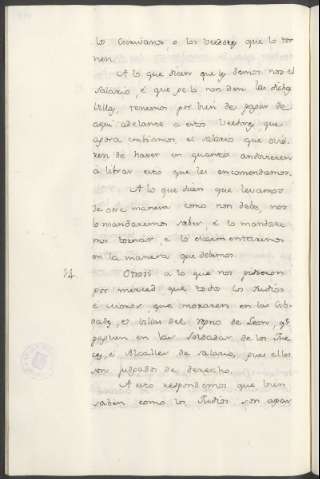 los Escrivanos o los veedores que lo tor
nen.
A lo que dicen que les demos nos el
salario, é que se lo non den las dichas
villas, tenemos por bien de pagar de
aqui adelante a estos Veedores que
agora embiamos, el salario que ovie-
ren de haver en quanto andovieren
a librar esto que les encomendamos.
A lo que dicen que levamos
de otra manera como non debo, nos
lo mandaremos saber, é lo mandare
mos tornar, é lo
en la manera que debemos.
24. Otrosi a lo que nos pidieron
por merced que todos los Judios
é Moros que moraren en las Cib-
dades, é Villas del Regno de Leon, qe
pechen en las Soldadas de los Jue-
ces, é Alcalles de Salario, pues ellos
son judgados de derecho.
A esto respondemos que bien
saben como los Judios son apar